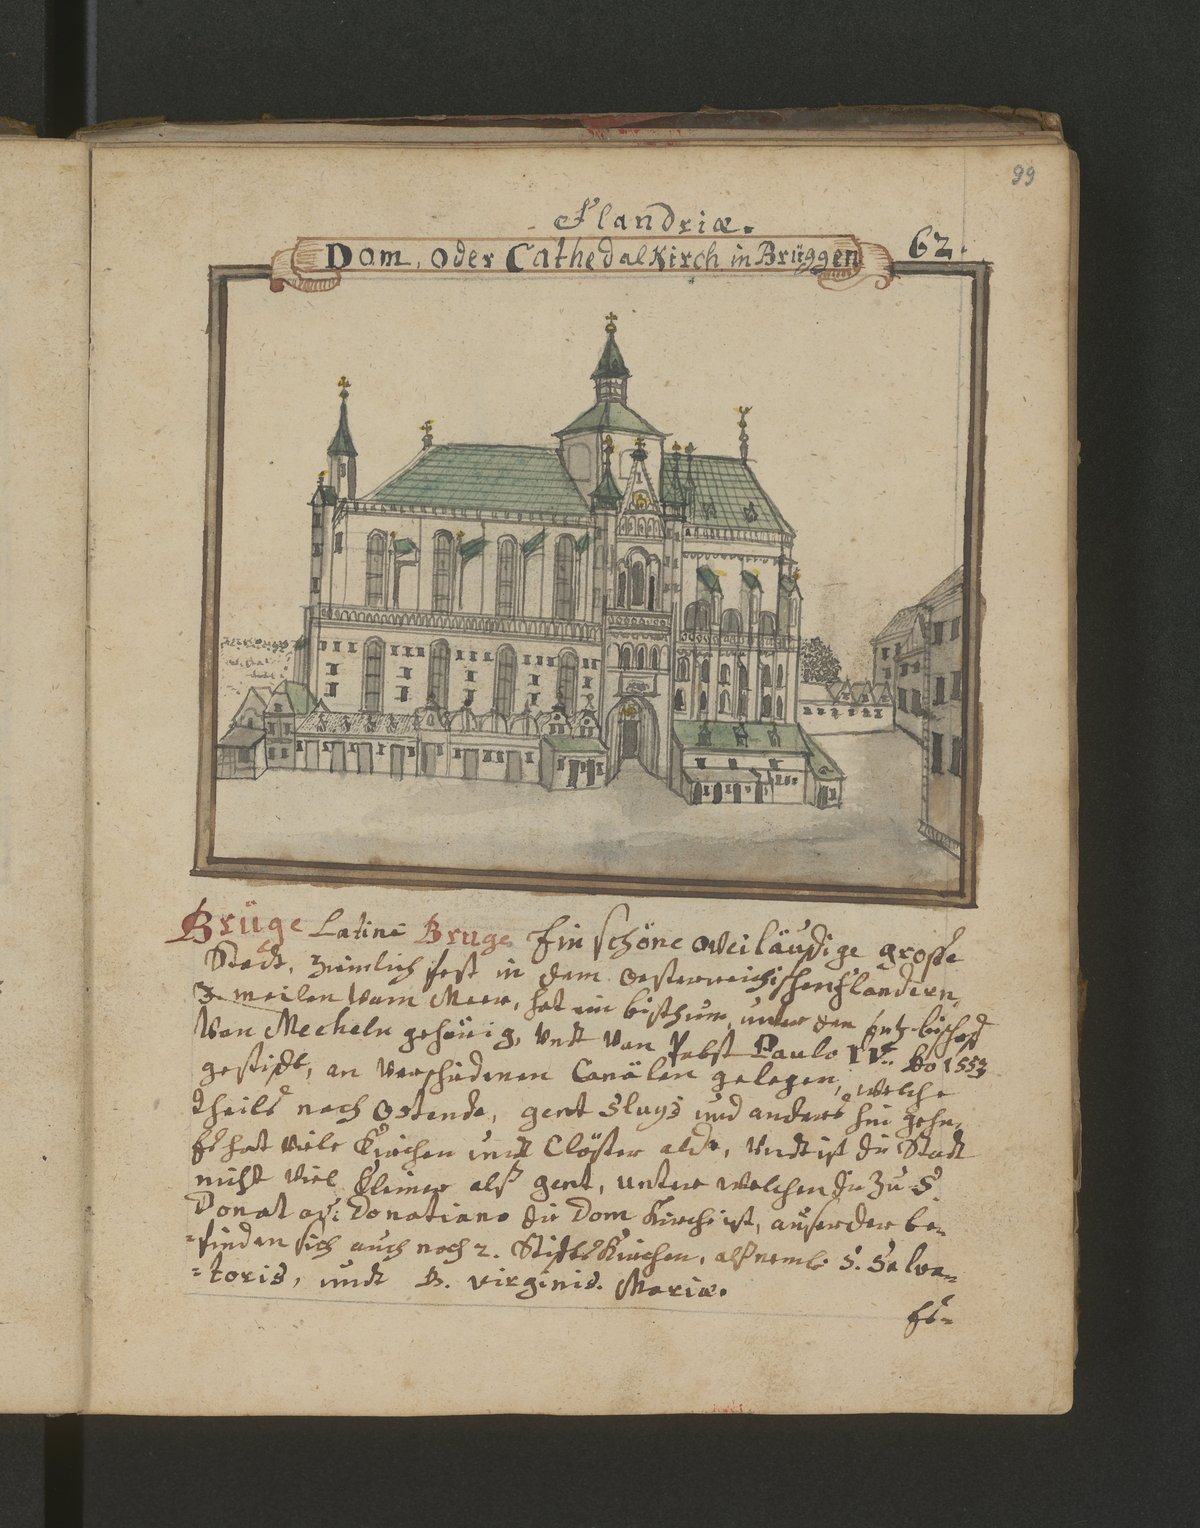 99
Flandriæ.
Dom, oder CathedalKirch in Brüggen
62.
Brüge Latine Bruge Ein schöne weiläuffige grosse
Stadt, zimlich fest in dem oesterreichischen Flandern,
3. meilen Vom Meer, hat ein bisthum, unter den Ertz-bischoff
Von Mecheln gehörig, Undt Von Pabst Paulo IV. 1553
gestifft, an Verschidenen Canälen gelegen, welche
theils nach Ostende, gent Sluys und anders hin gehn,
Es hat viele Kirchen undt Clöster alda, Undt ist die Stadt
nicht Viel kleiner alß gent, unter welchen die zu S.
Donat Donatiano die Dom Kirche ist, auser der be-
=finden sich auch noch 2. Stiffts Kirchen, alß neml: S. Salva=
=toris, undt B. virginis. Mariæ.
Es=